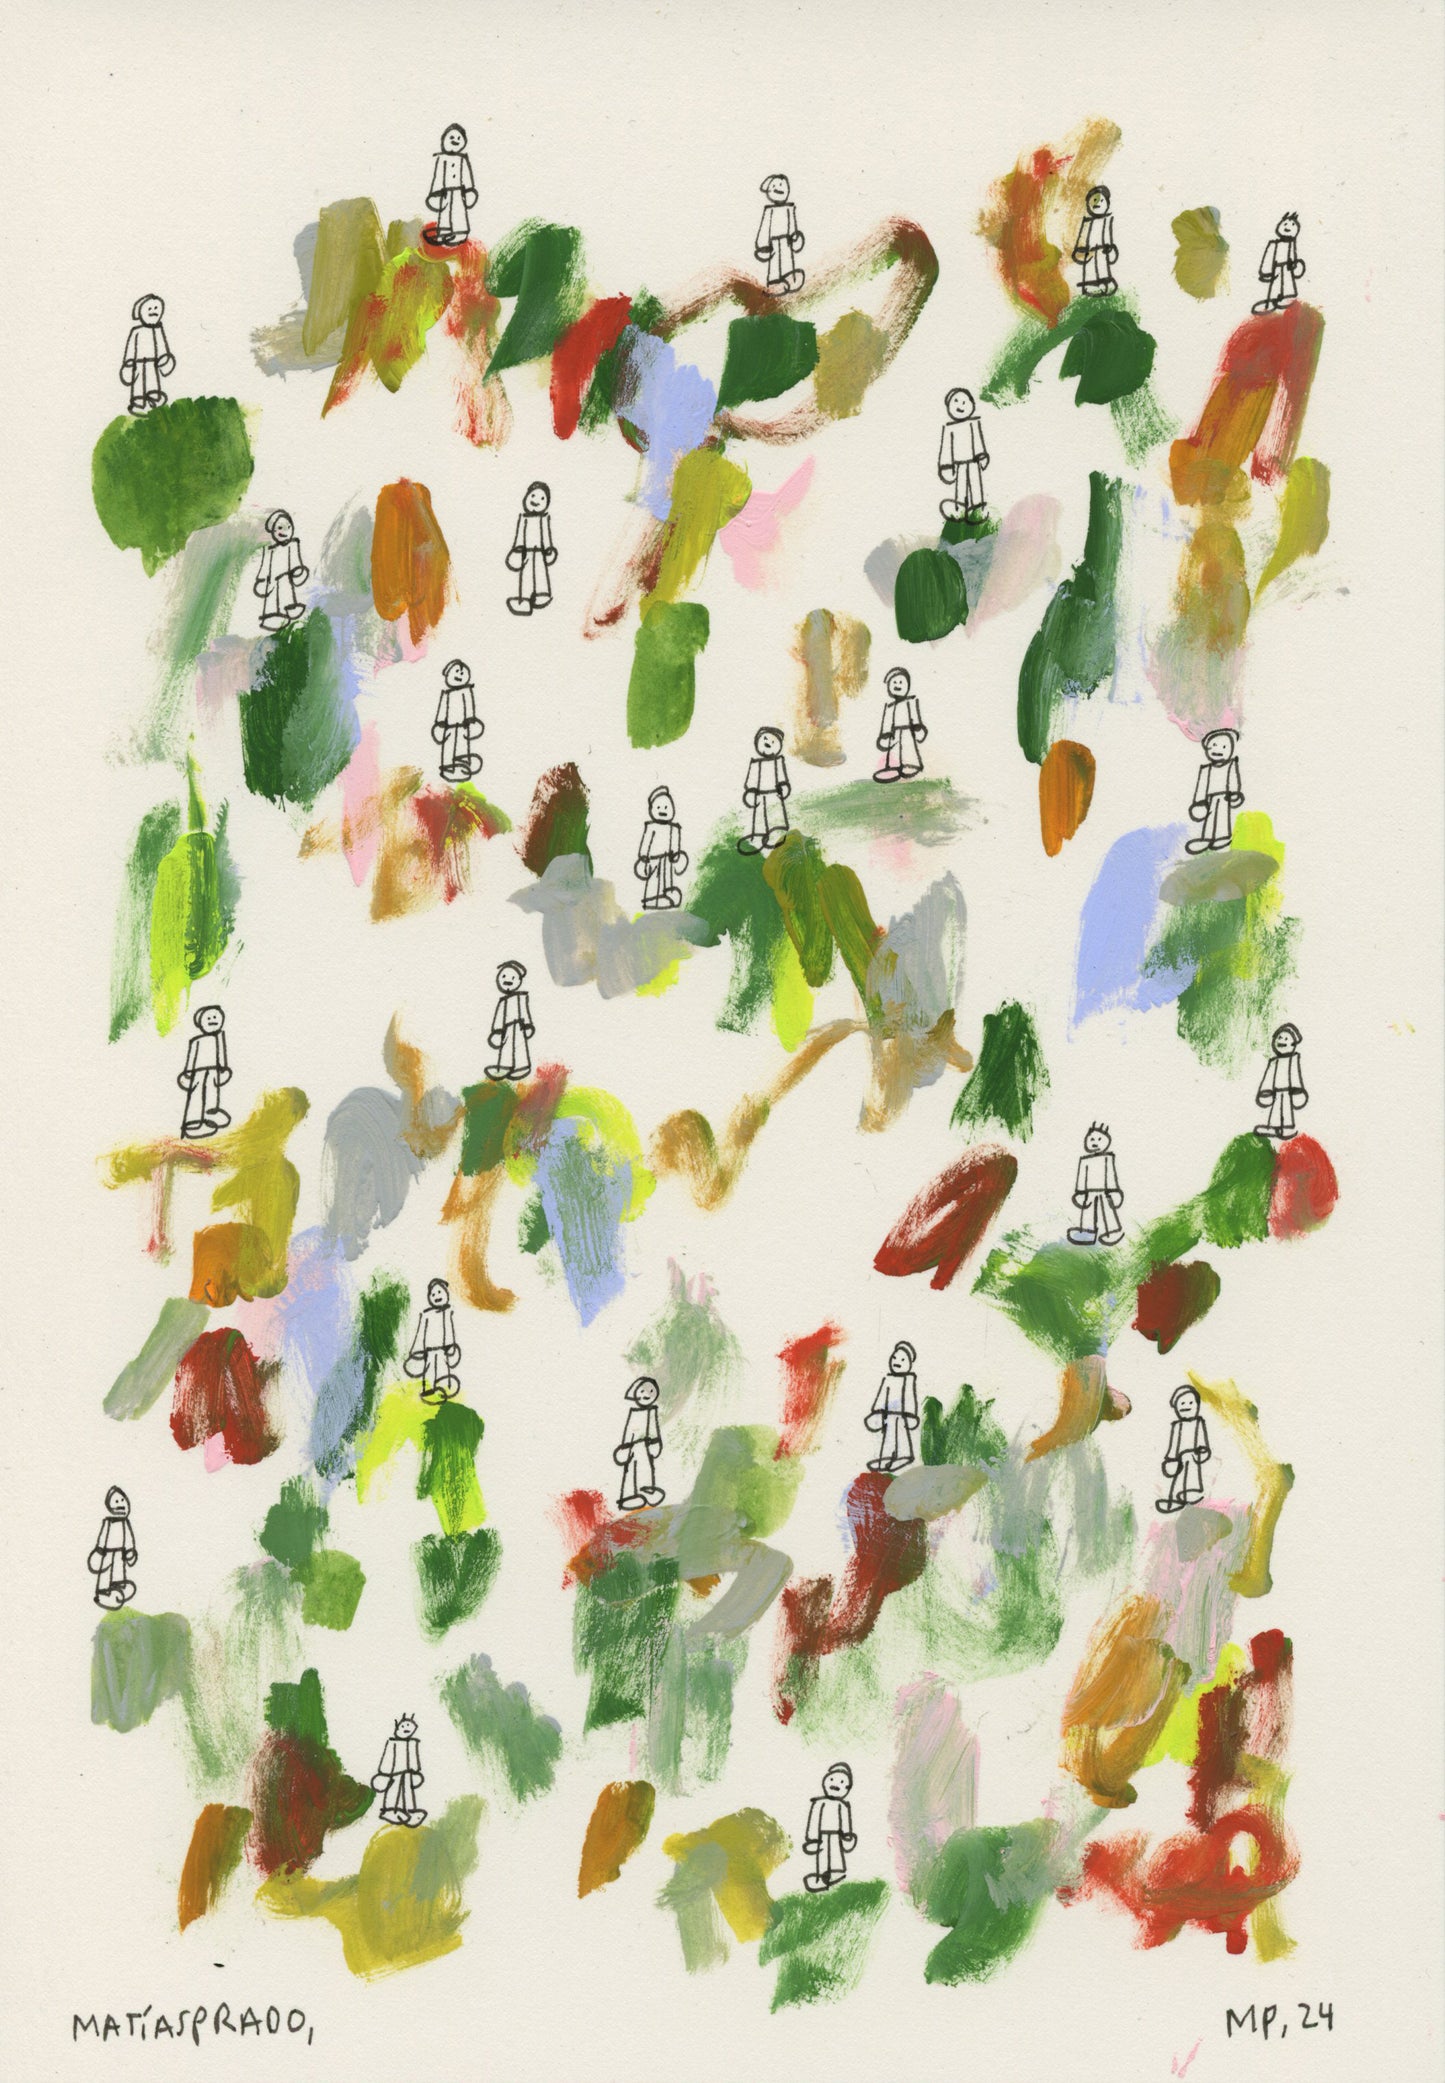 MATÍASPRADO,
MP, 24